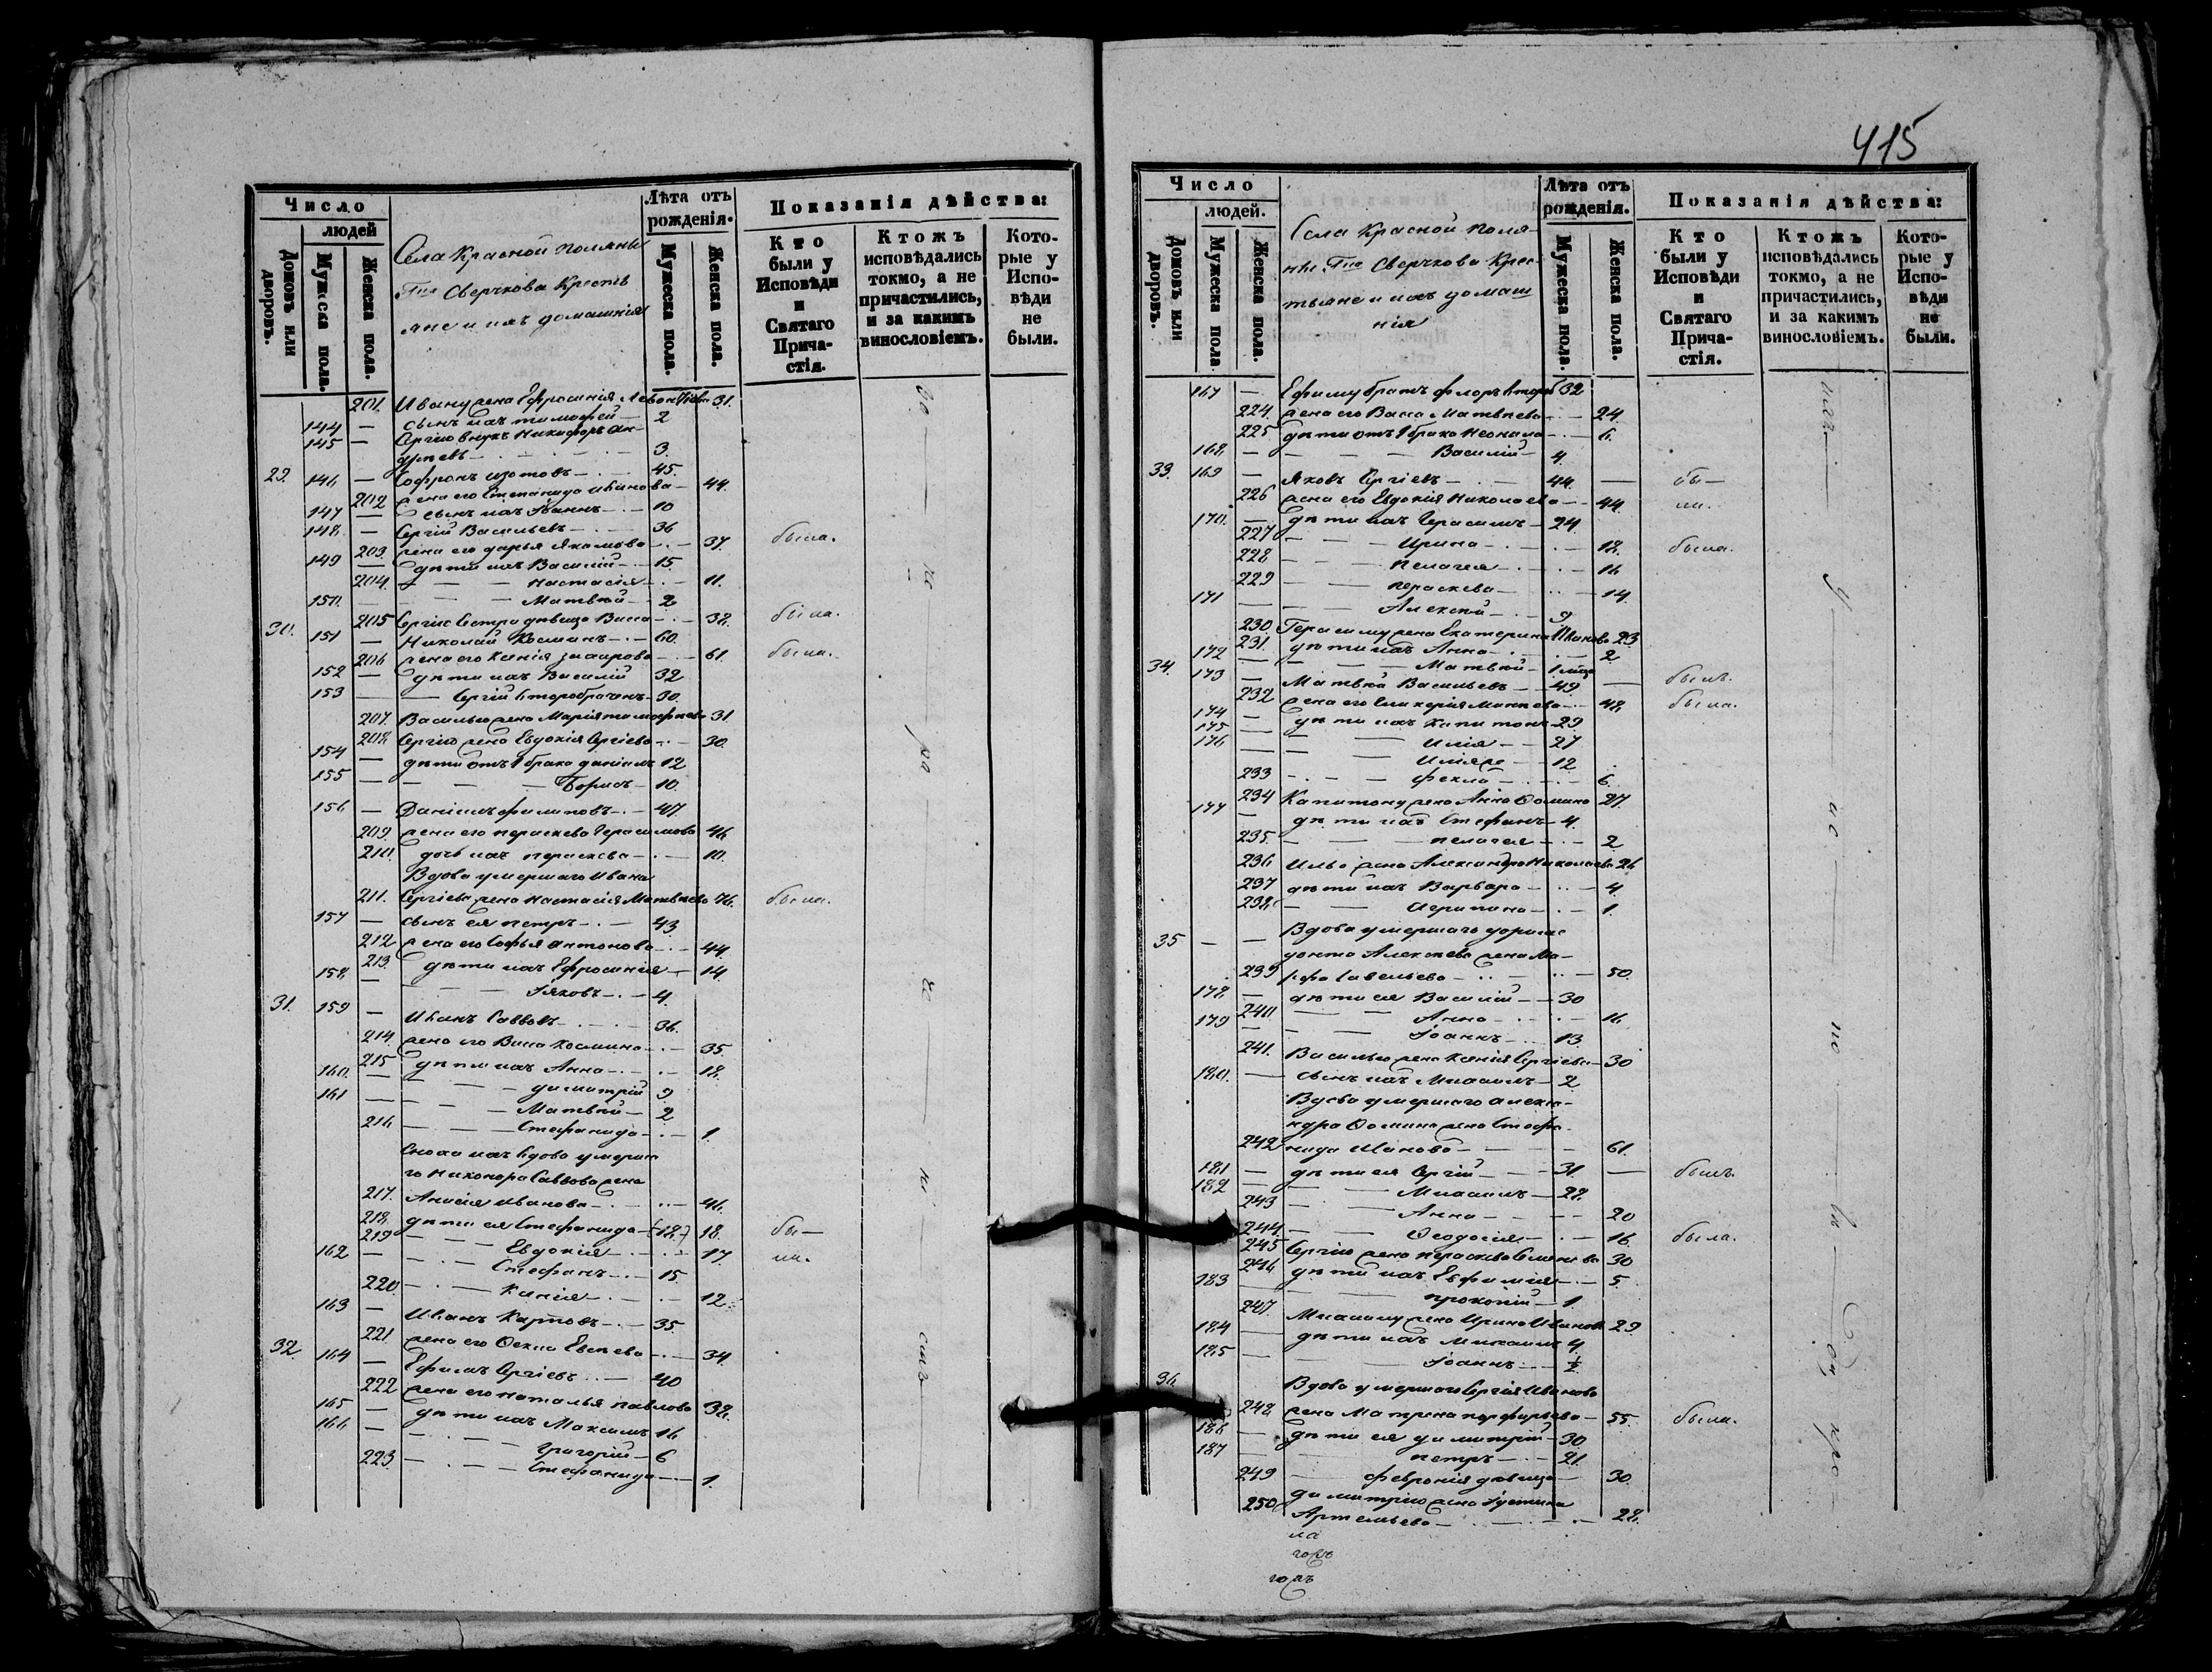 415
Число
людей
Домовъ или дворовъ.
Мужеска пола.
Женска пола.
Села Красной поляны
Гна Сверчкова Кресть
яне и ихъ домашнія
Лѣта отъ рожденія.
Мужеска пола.
Женска пола.
Показанія дѣйства:
Кто были у Исповѣди и Святаго Причастія.
Ктожъ исповѣдались токмо, а не причастились, и за какимъ винословіемъ.
Которые у Исповѣди не были.
201. Ивану жена Ефросинія 31.
144 — сынъ ихъ тимофей — 2
145 — Сергію внукъ Никифоръ Ан-
дреевъ — 3.
29. 146 — Софронъ изотовъ — 45.
202 жена его Степанида Иванова — 44.
147 — сынъ ихъ Іоаннъ — 10
148 — Сергій Васильевъ — 36
203. жена его дарья Якимова — 37. была.
149 — дѣти ихъ Василій — 15.
204. — Настасія — 11.
150. — Матвѣй — 2
205 Сергію Сестра дѣвица Васса — 38. была.
30. 151 — Николай Косминъ — 60.
206 жена его Ксенія — 61. была.
152 — дѣти ихъ Василій 32
153 — Сергій второбрачен. — 30.
207. Василью жена Марія тимофеева 31
208. Сергію жена Евдокія Сергіева — 30.
154 — дѣти отъ 1 брака даніилъ 12
155 — Борисъ — 10.
156 — Даніилъ филиповъ — 47.
209. жена его параскева Герасимова 46
210. дочь ихъ параскева — 10.
Вдова умершаго Ивана
211. Сергіева жена Настасія Матвѣева 76. была.
157 — сынъ ея петръ — 43
212 жена его Софья антонова — 44.
213. дѣти ихъ Ефросинія — 14.
158. — Іяковъ — 4.
31. 159 — Иванъ Саввовъ — 36.
214. жена его Васса Космина — 35.
215 дѣти ихъ Анна — 18.
160. — димитрій 9
161 — Матвѣй — 2
216 — Стефанида — 1.
Сноха ихъ вдова умерша
го Никонора Саввова жена
217. Анисія Иванова — 46.
218. дѣти ея Стефанида — (18.) 18. бы—
219 — Евдокія — 17. ла.
162 — Стефанъ — 15
220. — Ксенія — 12.
163 — Иванъ Карповъ — 35.
221. жена его Ѳекла — 34.
32 164 — Ефимъ Сергіевъ — 40
222 жена его наталья павлова 38.
165 — дѣти ихъ Максимъ 16
166 — Григорій — 6
223. — Стефанида — 1.
Число
людей.
Домовъ или дворовъ.
Мужеска пола
Женска пола.
Села Красной Поля-
ны Гна Сверчкова Крес-
тьяне и ихъ домаш
нія
Лѣта отъ рожденія.
Мужеска пола.
Женска пола.
Показанія дѣйства:
Кто были у Исповѣди и Святаго Причастія.
Ктожъ исповѣдались токмо, а не причастились, и за какимъ винословіемъ.
Которые у Исповѣди не были.
167 — Ефиму братъ флоръ 32
224. жена его Васса Матвѣева — 24.
225 дѣти отъ 1 брака Неонила — 6.
168. — Василій — 4.
33. 169 — Яковъ Сергіевъ — 44. — бы—
226 жена его Евдокія Николаева — 44. ли.
170. — дѣти ихъ Герасимъ — 24
227 — Ирина — 18. была.
228. — Пелагея — 16
229 — параскева — 14.
171 — Алексѣй — 9
230. Герасиму жена Екатерина Иванова 23
231. дѣти ихъ Анна — 2
172 — Матвѣй — 1
34. 173 — Матвѣй Васильевъ — 49. — былъ.
232 жена его — 48. была.
174 — дѣти ихъ Капитонъ 29
175 — Илія — 27
176 — 12
233 — Фекла — 6.
234 Капитону жена Анна Ѳомина 27.
177 — дѣти ихъ Стефанъ — 4.
235. — пелагея — 2
236 Ильѣ жена Александра Николаева 26
237 дѣти ихъ Варвара — 4
238. — Агрипина — 1.
35 — — Вдова умершаго дориме
донта Алексѣева жена Ма-
239 рфа Савельева — 50.
178. — дѣти ея Василій — 30
240. — Анна — 16
179 — Іоаннъ — 13.
241. Василью жена Ксенія Сергіева — 30
180. — сынъ ихъ Михаилъ — 2
Вдова умершаго алекса-
ндра Ѳомина жена Стефа-
242 нида Иванова — 61.
181 — дѣти ея Сергій — 31. — былъ.
182 — Михаилъ — 22.
243 — Анна — 20
244. — Ѳеодосія — 16. была.
245 Сергію жена параскева Семенова 30
246 дѣти ихъ Евфимія — 5
183 — прокопій — 1.
247. Михаилу жена Ирина Иванова 29
184 — дѣти ихъ Михаилъ 4
185 — Іоаннъ — ½
36. Вдова умершаго Сергія Иванова
248. жена Матрена порфирьева — 55. была.
186 — дѣти ея димитрій — 30
187 — петръ — 21
249 — февронія дѣвица — 30.
250. димитрію жена Іустина
Артемьева — 28.